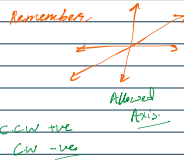 Remember
Allowed
Axis.
C.C.W +ve
CW -ves